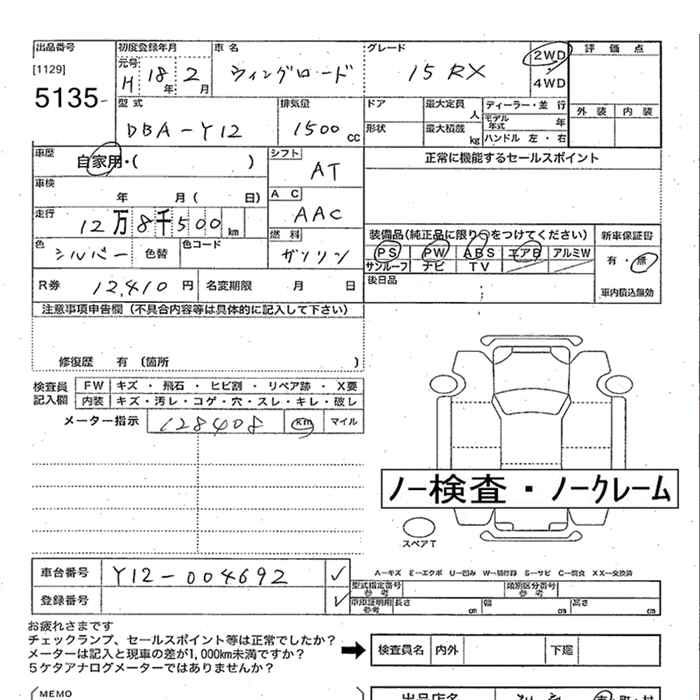 出品番号 初度登録年月 車名 グレード 2WD 評価点
[1129] 元号 H 18年 2月 ウィングロード 15RX 4WD
5135 型式 排気量 ドア 最大定員 人 ディーラー・並行 外装 内装
DBA-Y12 1500cc 形状 最大積載 kg モデル年式 年 ハンドル 左・右
車歴 自家用・( ) シフト AT 正常に機能するセールスポイント
車検 年 月( 日) AC AAC
走行 12万8千500km 燃料 ガソリン 装備品(純正品に限り○をつけてください) 新車保証書
色 シルバー 色替 色コード PS PW ABS エアB アルミW 有・無
サンルーフ ナビ TV
R券 12,410円 名変期限 月 日 後日品 車内積込無効
注意事項申告欄(不具合内容等は具体的に記入して下さい)
修復歴 有 (箇所 )
検査員記入欄 FW キズ・飛石・ヒビ割・リペア跡・X要
内装 キズ・汚レ・コゲ・穴・スレ・キレ・破レ
メーター指示 128408 km マイル
ノー検査・ノークレーム
スペアT
車台番号 Y12-004692 A-キズ E-エクボ U-凹み W-補修跡 S-サビ C-腐食 XX-交換済
登録番号 型式指定番号 参考 類別区分番号 参考
車印証明用 参考 長さ cm 幅 cm 高さ cm
お疲れさまです
チェックランプ、セールスポイント等は正常でしたか?
メーターは記入と現車の差が1,000km未満ですか? 検査員名 内外 下廻
5ケタアナログメーターではありませんか?
MEMO 出品店名